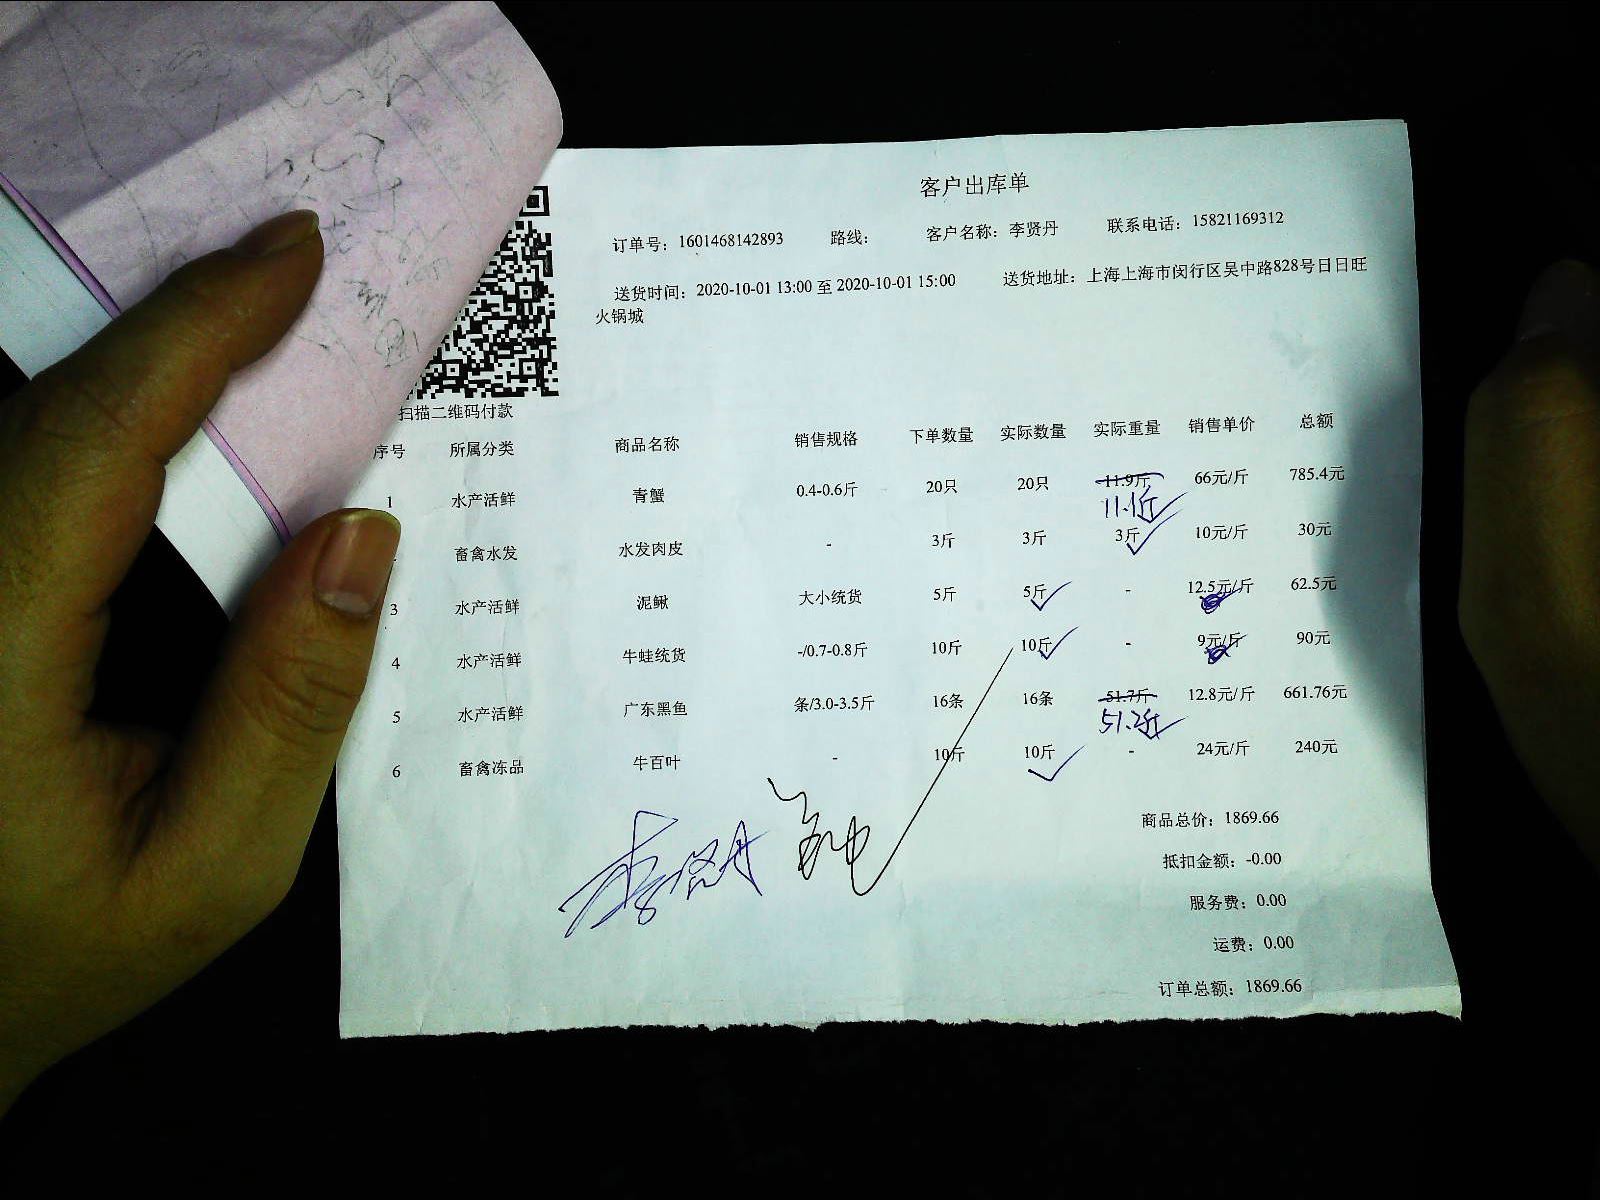 客户出库单
订单号：1601468142893 路线： 客户名称：李贤丹 联系电话：15821169312
送货时间：2020-10-01 13:00 至 2020-10-01 15:00 送货地址：上海上海市闵行区吴中路828号日日旺
火锅城
扫描二维码付款
序号 所属分类 商品名称 销售规格 下单数量 实际数量 实际重量 销售单价 总额
1 水产活鲜 青蟹 0.4-0.6斤 20只 20只 11.9斤 66元/斤 785.4元
11.1斤
畜禽水发 水发肉皮 - 3斤 3斤 3斤 10元/斤 30元
3 水产活鲜 泥鳅 大小统货 5斤 5斤 - 12.5元/斤 62.5元
4 水产活鲜 牛蛙统货 -/0.7-0.8斤 10斤 10斤 - 9元/斤 90元
5 水产活鲜 广东黑鱼 条/3.0-3.5斤 16条 16条 51.7斤 12.8元/斤 661.76元
51.2斤
6 畜禽冻品 牛百叶 - 10斤 10斤 - 24元/斤 240元
商品总价：1869.66
抵扣金额：-0.00
服务费：0.00
运费：0.00
订单总额：1869.66
李贤丹